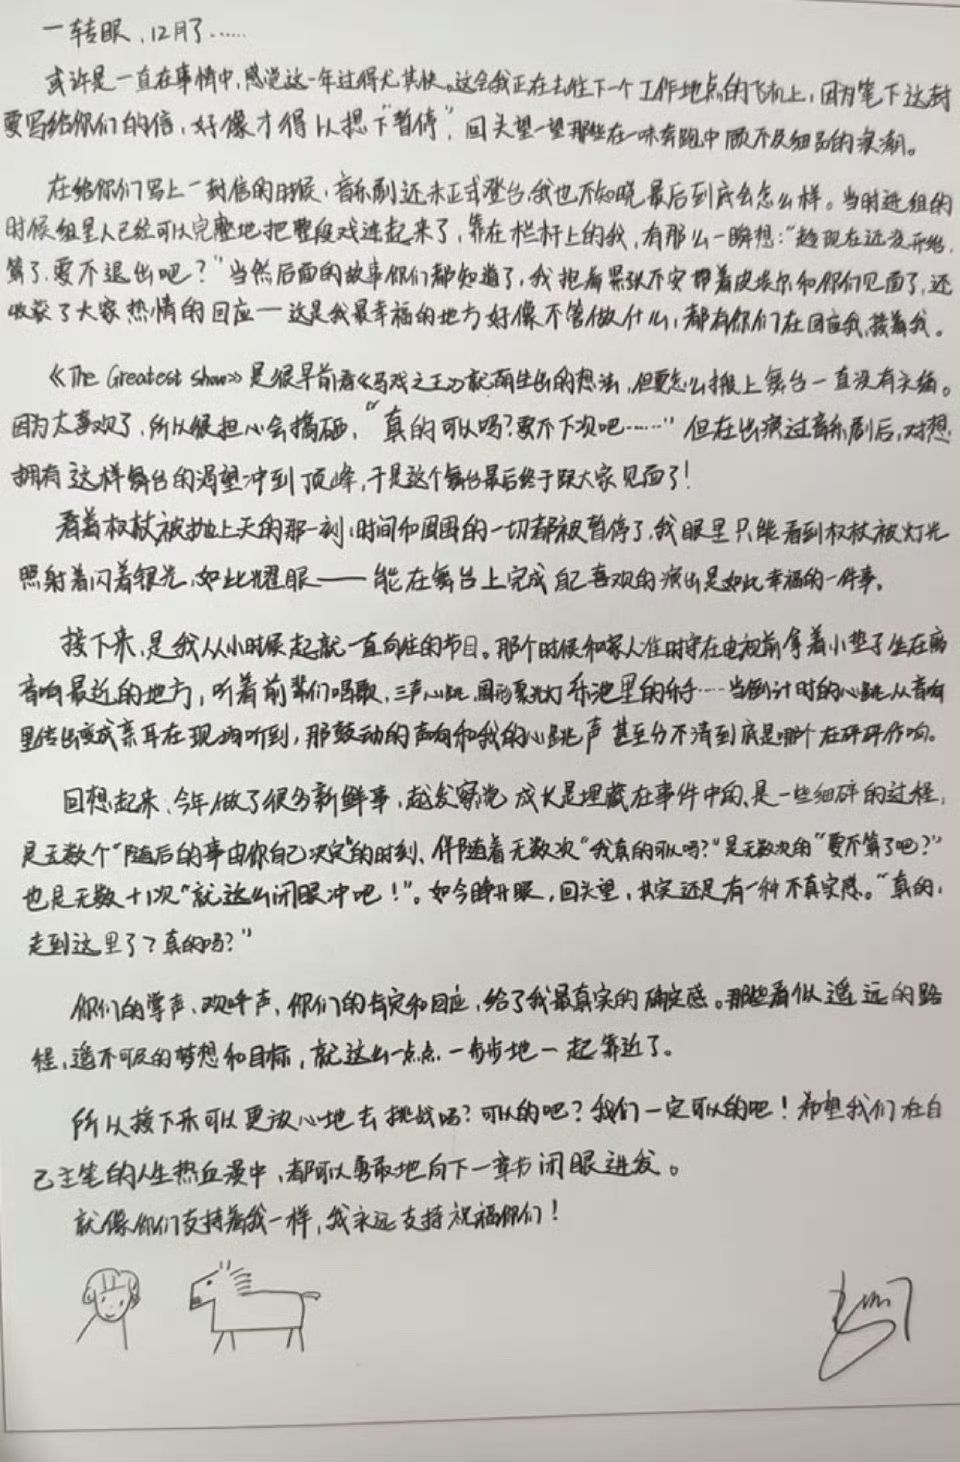 一转眼，12月了……
或许是一直在事情中，感觉这一年过得尤其快。这会我正在去往下一个工作地点的飞机上，因为笔下这封
要写给你们的信，好像才得以摁下“暂停”，回头望一望那些在一味奔跑中顾不及细品的浪潮。
在给你们写上一封信的时候，音乐剧还未正式登台，我也不知晓最后到底会怎么样。当时进组的
时候组里人已经可以完整地把整段戏连起来了，靠在栏杆上的我，有那么一瞬想：“趁现在还没开始，
算了，要不退出吧？”当然后面的故事你们都知道了，我抱着紧张不安带着皮埃尔和你们见面了，还
收获了大家热情的回应——这是我最幸福的地方，好像不管做什么，都有你们在回应我，接着我。
《The Greatest Show》是很早前看《马戏之王》就萌生出的想法，但要怎么搬上舞台一直没有头绪。
因为太喜欢了，所以很担心会搞砸，“真的可以吗？要不下次吧……”但在出演过音乐剧后，对想
拥有这样舞台的渴望冲到顶峰，于是这个舞台最后终于跟大家见面了！
看着权杖被抛上天的那一刻，时间和周围的一切都被暂停了，我眼里只能看到权杖被灯光
照射着闪着银光，如此耀眼——能在舞台上完成自己喜欢的演出是如此幸福的一件事。
接下来，是我从小时候起就一直向往的节目。那个时候和家人准时守在电视前拿着小垫子坐在离
音响最近的地方，听着前辈们唱歌，三声心跳，圆形聚光灯，乐池里的乐手……当倒计时的心跳从音响
里传出变成亲耳在现场听到，那鼓动的声响和我的心跳声甚至分不清到底是哪个在砰砰作响。
回想起来，今年做了很多新鲜事，越发察觉成长是埋藏在事件中的，是一些细碎的过程，
是无数个“随后的事由你自己决定”的时刻、伴随着无数次“我真的可以吗？”是无数次的“要不算了吧？”
也是无数+1次“就这么闭眼冲吧！”。如今睁开眼，回头望，其实还是有一种不真实感。“真的，
走到这里了？真的吗？”
你们的掌声、欢呼声，你们的肯定和回应，给了我最真实的确定感。那些看似遥远的路
程，遥不可及的梦想和目标，就这么一点点、一步步地一起靠近了。
所以接下来可以更放心地去挑战吗？可以的吧？我们一定可以的吧！希望我们在自
己主笔的人生热血漫中，都可以勇敢地向下一章节闭眼进发。
就像你们支持着我一样，我永远支持祝福你们！